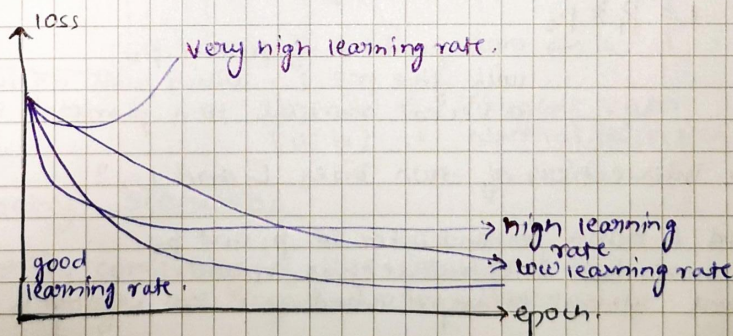 loss
very high learning rate.
high learning
rate
low learning rate
good
learning rate.
epoch.